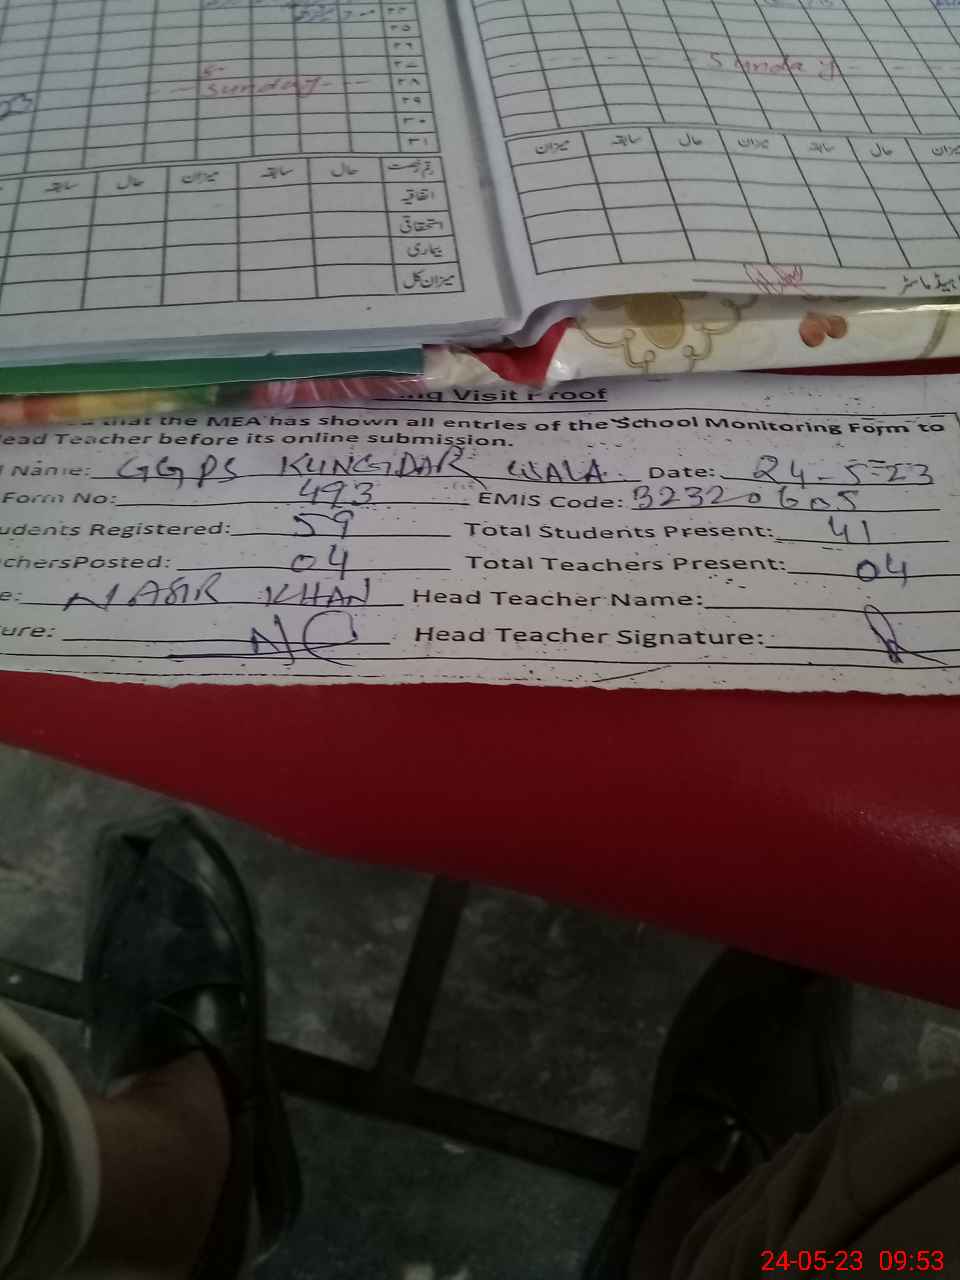 ۲۵
۲۶
۲۷
Sunday
۲۸
Sunday
۲۹
۳۰
۳۱
سابقہ حال میزان سابقہ حال قسم رخصت
اتفاقیہ
استحقاقی
بیماری
میزان کل
میزان سابقہ حال میزان سابقہ حال
ہیڈ ماسٹر
Visit Proof
that the MEA has shown all entries of the School Monitoring Form to
Head Teacher before its online submission.
Name: GGPS KUNGIDAR WALA Date: 24-5-23
Form No: 493 EMIS Code:
Students Registered: 59 Total Students Present: 41
Teachers Posted: 04 Total Teachers Present: 04
NASIR KHAN Head Teacher Name:
Head Teacher Signature:
24-05-23 09:53